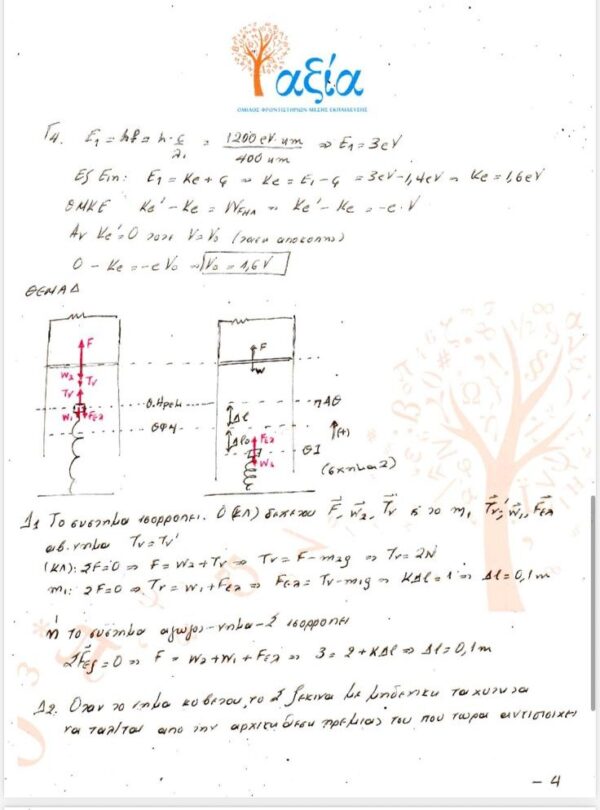 αξία
ΟΜΙΛΟΣ ΦΡΟΝΤΙΣΤΗΡΙΩΝ ΜΕΣΗΣ ΕΚΠΑΙΔΕΥΣΗΣ
Γ4. E₁ = hf = h·c/λ₁ = 1200 eV·nm / 400 nm ⇒ E₁ = 3eV
Εξ Ein: E₁ = Ke + φ ⇒ Ke = E₁ - φ = 3eV - 1,4eV ⇒ Ke = 1,6eV
ΘΜΚΕ Ke' - Ke = W ⇒ Ke' - Ke = -e·V
Αν Ke' = 0 τότε V = V₀ (τάση αποκοπής)
0 - Ke = -eV₀ ⇒ V₀ = 1,6V
ΘΕΜΑ Δ
F F
W₂ Tν W
Tν'
W₁ Fελ Θ.Ηρεμ ΠΑΘ
Δl
ΘΦΜ (+)
Δl₀ Fελ
ΘΙ
W₁
(σχημα 2)
Δ1 Το συστημα ισορροπει. Ο (ΚΛ) δεχεται F, W₂, Tν & το m₁ Tν', W₁, Fελ
αβ. νημα Tν = Tν'
(ΚΛ): ΣF=0 ⇒ F = W₂ + Tν ⇒ Tν = F - m₂g ⇒ Tν = 2N
m₁: ΣF=0 ⇒ Tν = W₁ + Fελ ⇒ Fελ = Tν - m₁g ⇒ KΔl = 1 ⇒ Δl = 0,1m
ή Το συστημα αγωγος-νημα-Σ ισορροπει
ΣFεξ = 0 ⇒ F = W₂ + W₁ + Fελ ⇒ 3 = 2 + KΔl ⇒ Δl = 0,1m
Δ2. Οταν το νημα κοβεται, το Σ ξεκινα με μηδενικη ταχυτητα
να ταλ/ται απο την αρχικη θεση ηρεμιας του που τωρα αντιστοιχει
- 4